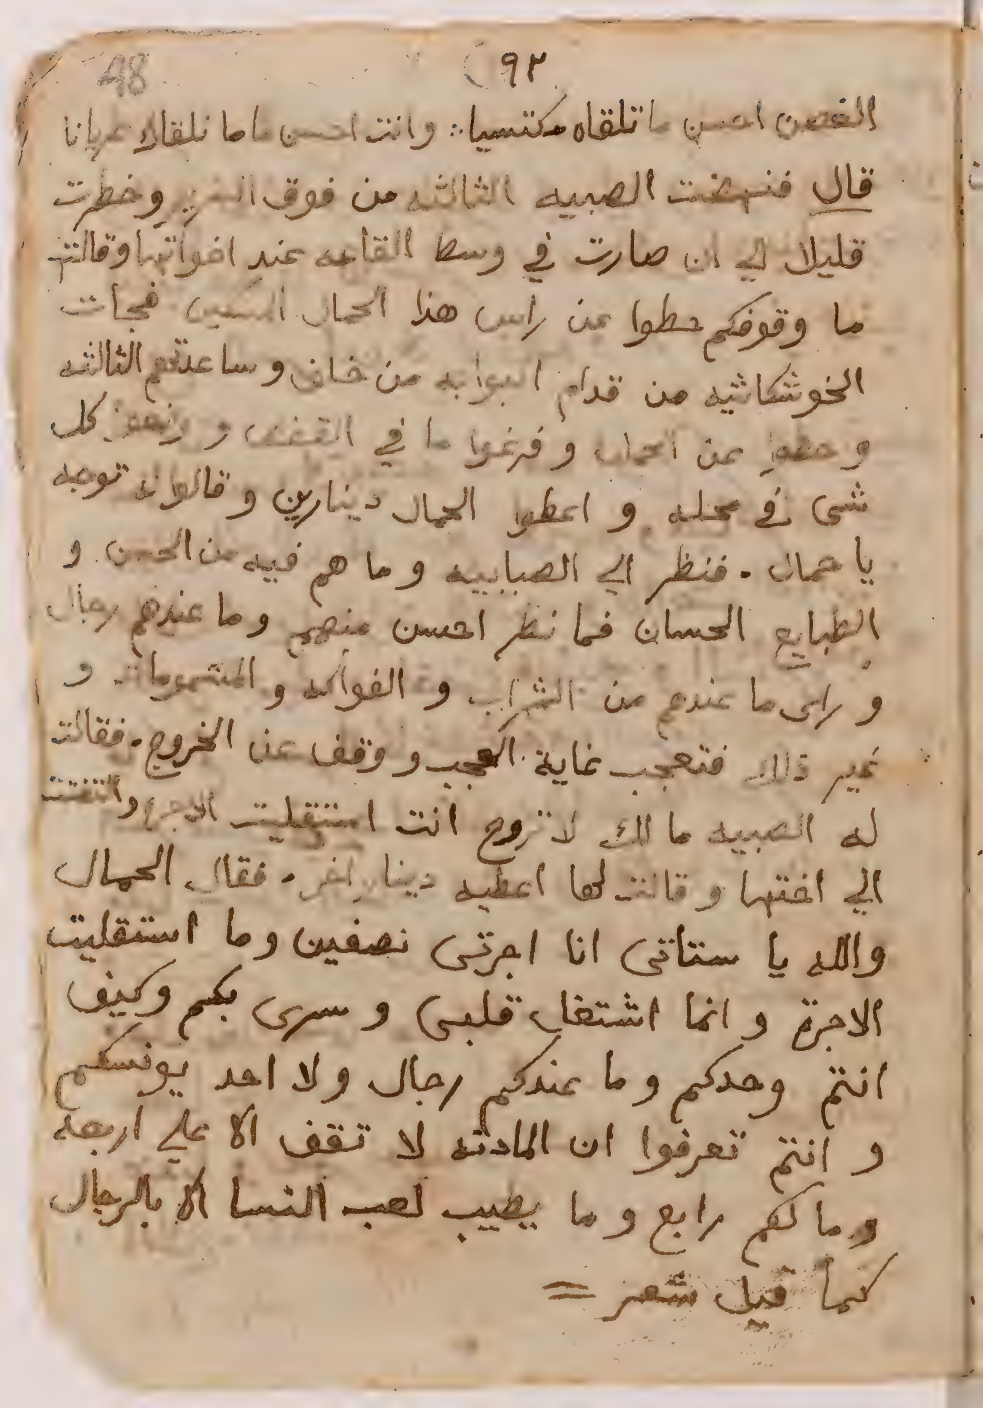 48 ٩٢
الغصن احسن ما تلقاه مكتسيا ∴ وانت احسن ما ما نلقاك عريانا
قال فنهضت الصبيه الثالثه من فوق السرير وخطرت
قليلا الي ان صارت في وسط القاعه عند اخواتها وقالت
ما وقوفكم حطوا عن راس هذا الحمال المسكين فجأت
الخوشكاشيه من قدام البوابه من خلف وساعدتهم الثالثه
و حطوا عن الحمال و فرغوا ما في القفص و رفعوا كل
شى في محله و اعطوا الحمال دينارين و قالوا له توجه
يا حمال . فنظر الي الصبابيه و ما هم فيه من الحسن و
الطبايع الحسان فما نظر احسن منهم وما عندهم رجال
و راى ما عندهم من الشراب و الفواكه و المشمومات و
غير ذلك فتعجب غاية العجب و وقف عن الخروج . فقالت
له الصبيه ما لك لا تروح انت استقليت الاجره والتفتت
الي اختها و قالت لها اعطيه دينار اخر . فقال الحمال
والله يا ستاتى انا اجرتى نصفين وما استقليت
الاجرة و انما اشتغل قلبى و سرى بكم وكيف
انتم وحدكم وما عندكم رجال ولا احد يونسكم
و انتم تعرفوا ان المادته لا تقف الا علي اربعه
وما لكم رابع و ما يطيب لعب النسا الا بالرجال
كما قيل شعر =